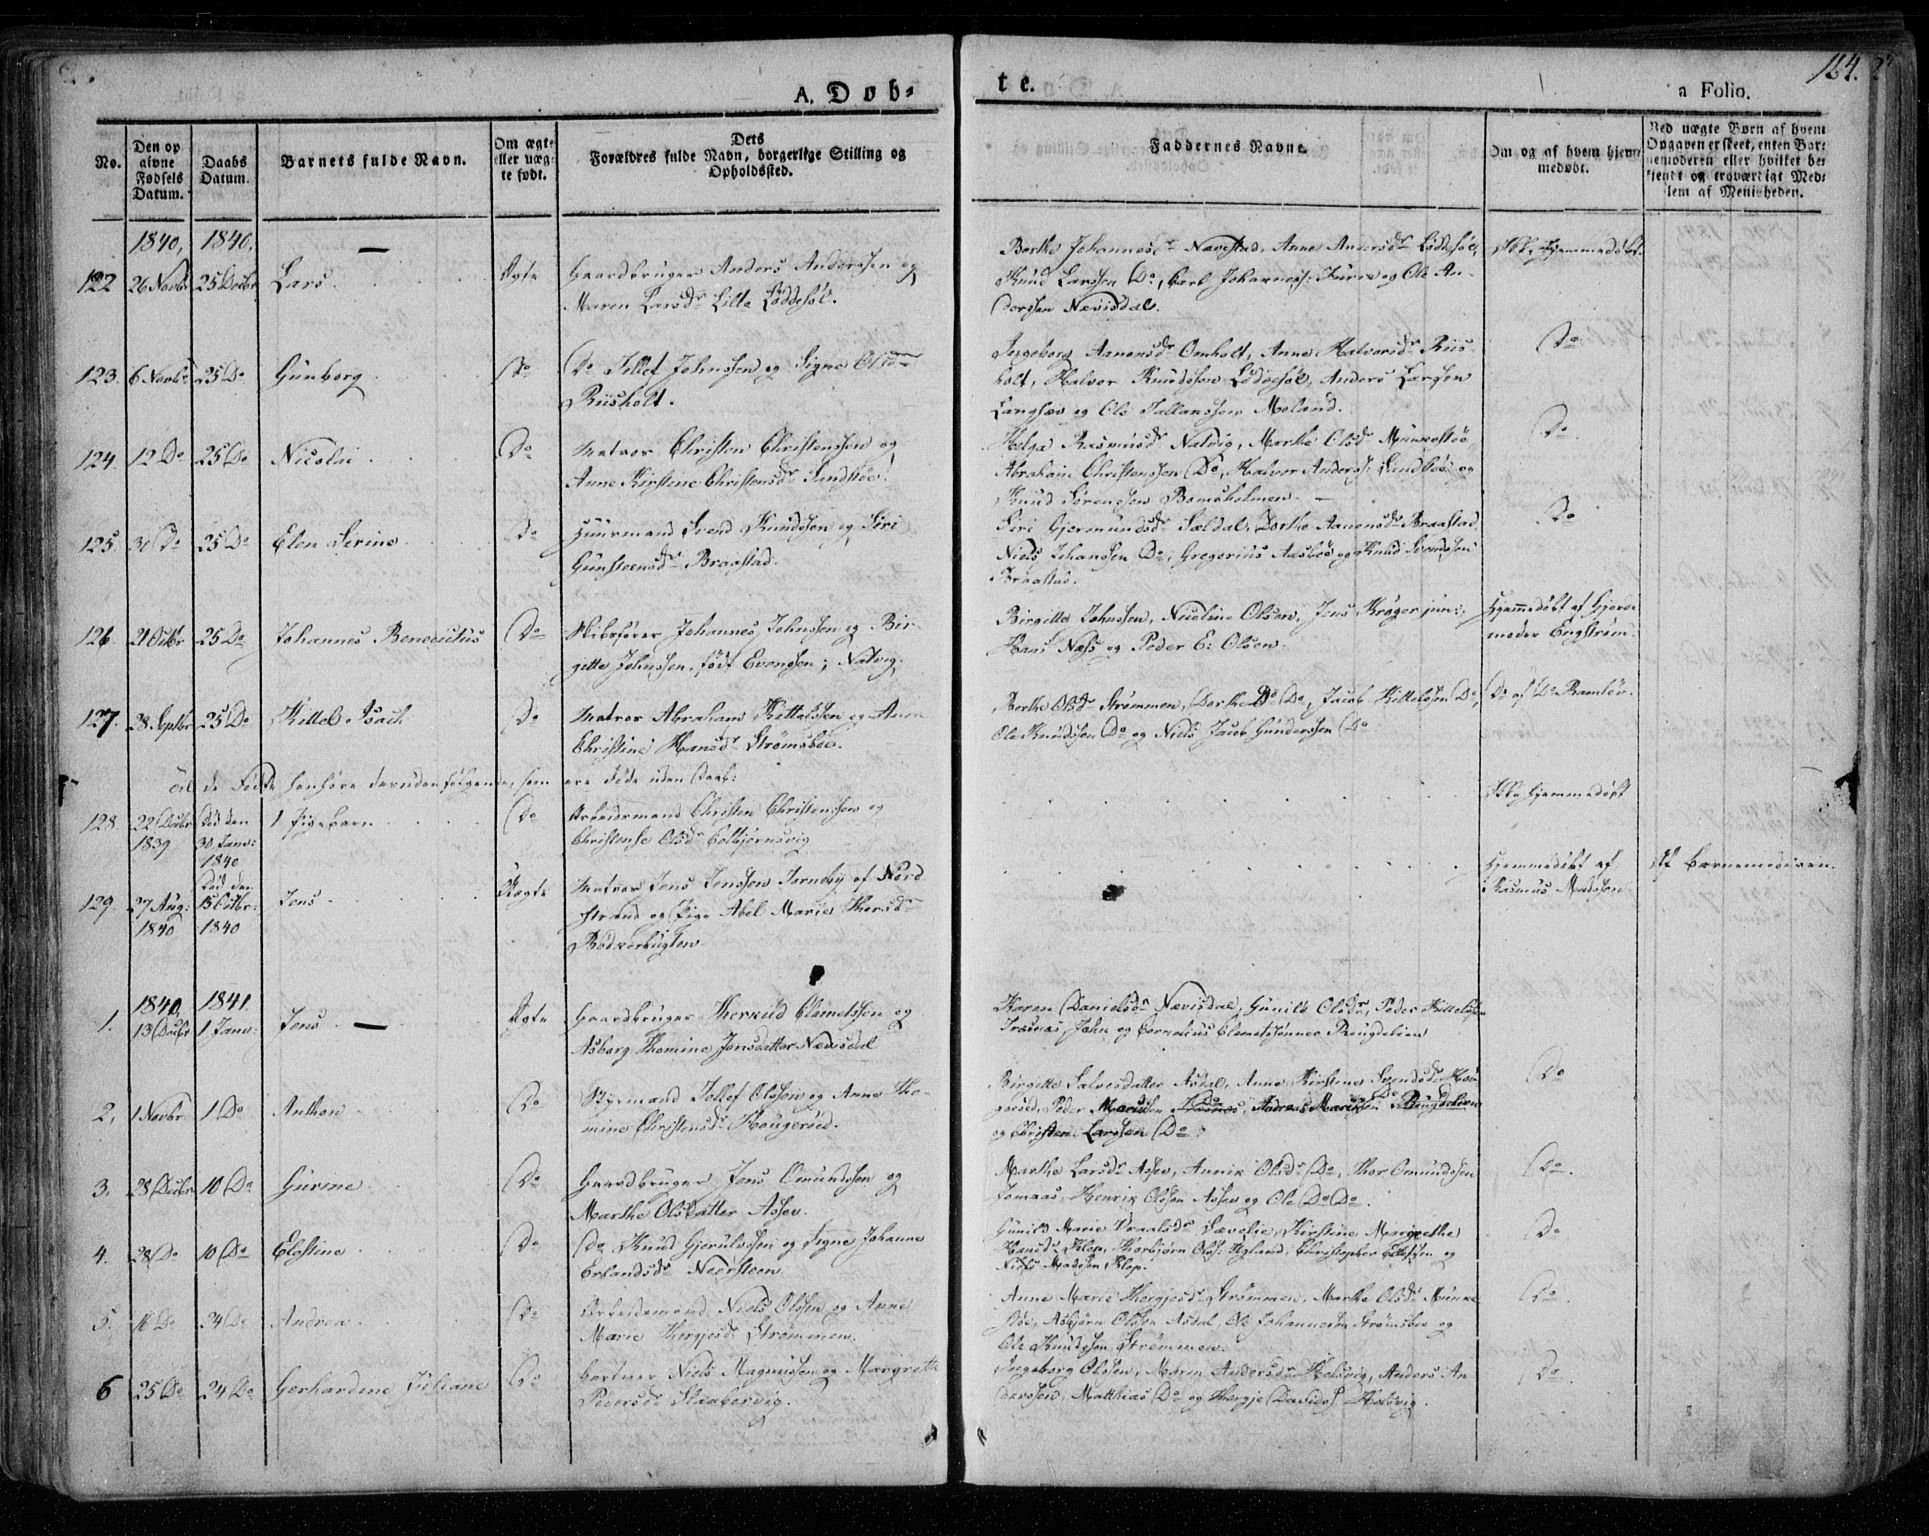 124.
A. Døb-
te.
a Folio.
No.
Den op
givne
Fødsels
Datum.
Daabs
Datum.
Barnets fulde Navn.
Om ægte
eller uæg-
te født.
Dets
Forældres fulde Navn, borgerlige Stilling og
Opholdssted.
Faddernes Navne.
Om og af hvem hjem-
medøbt.
Ved uægte Børn af hvem
Opgaven er skeet, enten Bar-
nemoderen eller hvilket be
kjendt og troværdigt Med-
lem af Menigheden.
1840, 1840.
122 26 Novbr 25 Decbr Lars Ægte Gaardbruger Anders Anderssen og
Maren Larsdr Lille Løddesøl.
Berthe Johannesdr Navestad, Anne Andersdr Løddesøl,
Knud Larssen Do, Carl Johanness: Furre og Ole An-
derssen Nævisdal.
Ikke Hjemmedøbt.
123. 6 Novbr 25 Do Gunborg Do Do Tellef Johnssen og Signe Olsdr
Riisholt.
Ingeborg Aanonsdr Omholt, Anne Halvorsdr Riis-
holt, Halvor Knudssen Løddesøl, Anders Larsen
Langsæv og Ole Tallakssen Moland.
Do
124. 12 Do 25 Do Nicolai Do Matros Christen Christenssen og
Anne Kirstine Christensdr Sundsbøe.
Helga Rasmusdr Natvig, Marthe Olsdr Munkestøe
Abraham Christenssen Do, Halvor Anderss: Sundsbøe og
Knud Sørensen Bomsholmen.
Do
125. 30 Do 25 Do Elen Serine Do Huusmand Svend Knudssen og Siri
Gunsteensdr Braastad.
Siri Gjermundsdr Sældal, Dorthe Aanonsdr Braastad
Niels Johanssen Do, Gregorius Aasbøe og Knud Svendssen
Braastad.
Do
126. 21 Octbr 25 Do Johannes Benedictus Do Skibsfører Johannes Johnssen og Bir-
gitte Johnssen, født Evensen; Natvig.
Birgitte Johnssen, Nicoline Olsen, Jens Krøger jun:,
Hans Næss og Peder E: Olsen.
Hjemmedøbt af Gjorde-
moder Engstrøm.
127. 28 Septbr 25 Do Kittel Isach Do Matros Abraham Kittelssen og Anne
Christine Hansdr Strømsboe.
Berthe Olsdr Strømmen, Dorthe Do Do, Jacob Kittelssen Do,
Ole Knudssen Do og Niels Jacob Gunderssen Do
Do af Do Ramløv.
Til de Fødte henhøre desuden følgende, som ere døde uden Daab:
128. 22 Decbr
1839
Død den
30 Janv:
1840
1 Pigebarn Do Arbeidsmand Christen Christenssen og
Christense Olsdr Colbjørnsvig
Ikke Hjemmedøbt
129. 27 Aug:
1840
Død den
15 Octbr:
1840
Jens Uægte Matros Jens Jenssen Torneby af Nord
strand og Pige Abel Marie Thorsdr
Bodverbugten
Hjemmedøbt af
Rasmus Madssen.
Af Barnemoderen.
1840, 1841
1. 13 Decbr 1 Janv: Jens Ægte Gaardbruger Therkild Clemetssen og
Asborg Thomine Jensdatter Nævisdal
Karen Danielsdr Nævisdal, Gunild Olsdr, Peder Kittelsen
Træsnæs, John og Cornelius Clemetssønner Rougdelien
2. 1 Novbr 1 Do Anthon Do Styrmand Tellef Olssen og Anne Tho-
mine Christensdr Hougerød.
Birgitte Salvesdatter Asdal, Anne Kirstine Svendsdr Hou-
gerød, Peder
og Christen Larssen Do.
Do
3. 28 Decbr 10 Do Gurine Do Gaardbruger Jens Omundssen og
Marthe Olsdatter Assev.
Marthe Larsdr Assev, Annik Olsdr Do, Thor Omundssen
Tomaas, Henrik Olssen Assev og Ole Do Do.
Do.
4. 28 Do 10 Do Elestine Do Do Knud Gjerulvssen og Signe Johanne
Erlandsdr Neersteen.
Gunild Marie Hansdr Klop, Thorbjørn Olss: Uglund, Christopher Ellefssen og
Niels Madssen Klop.
Do
5. 16 Do 24 Do Andrea Do Arbeidsmand Niels Olssen og Anne
Marie Thergjesdr Strømmen.
Anne Marie Thergjesdr Strømmen, Marthe Olsdr Munke
støe, Asbjørn Olssen Asdal, Ole Johannesen Strømsboe og
Ole Knudssen Strømmen.
Do.
6 25 Do 24 Do Gerhardine Juliane Do Gartner Niels Magnussen og Margreth
Pedersdr Skaabervig.
Ingeborg Olssen, Maren Andersdr Holsvig, Anders An
derssen, Matthias Do og Thergje Davids: Holsvig.
Do.